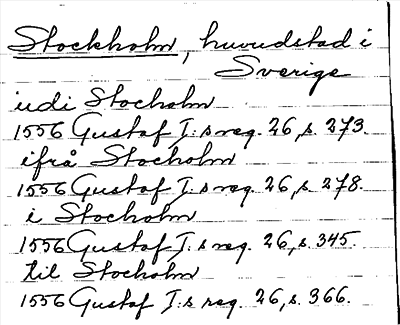 Stockholm, huvudstad i
Sverige
udi Stocholm
1556 Gustaf I:s reg. 26, s. 273.
ifrå Stocholm
1556 Gustaf I:s reg. 26, s. 278.
i Stocholm
1556 Gustaf I:s reg. 26, s. 345.
til Stocholm
1556 Gustaf I:s reg. 26, s. 366.